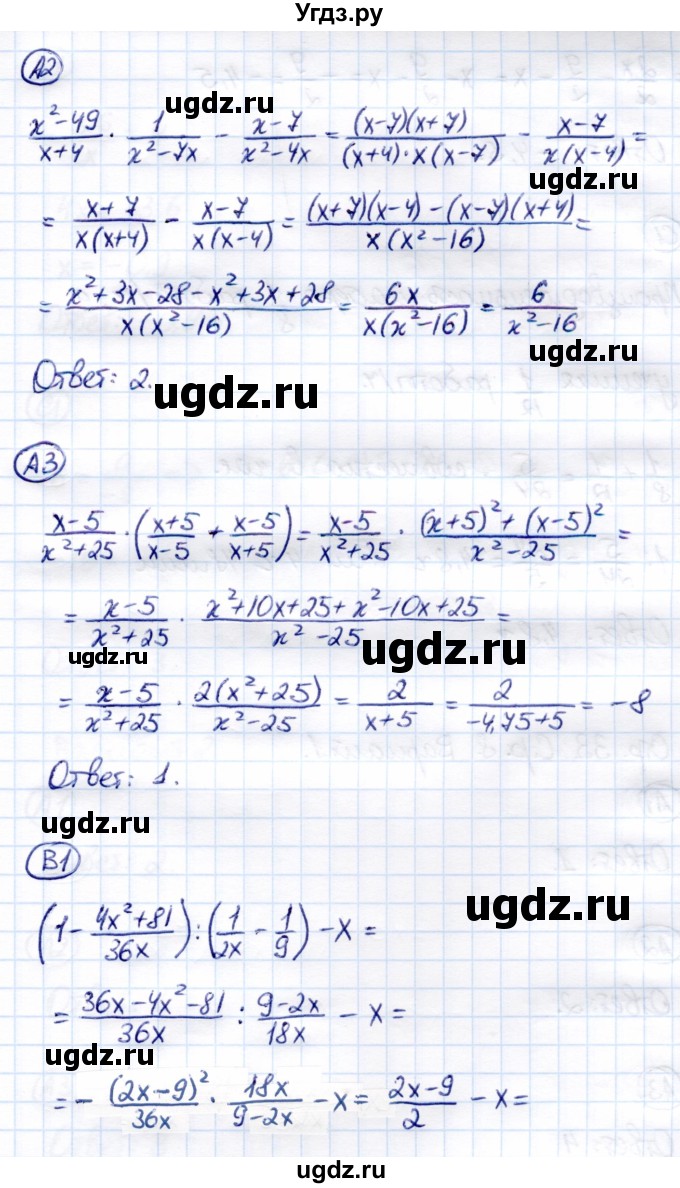 Угдз.ру
A2
(x²-49)/(x+4) · 1/(x²-7x) - (x-7)/(x²-4x) = (x-7)(x+7)/((x+4)·x(x-7)) - (x-7)/(x(x-4)) =
ugdz.ru
= (x+7)/(x(x+4)) - (x-7)/(x(x-4)) = ((x+7)(x-4) - (x-7)(x+4))/(x(x²-16)) =
ugdz.ru
= (x²+3x-28-x²+3x+28)/(x(x²-16)) = 6x/(x(x²-16)) = 6/(x²-16)
ugdz.ru
Ответ: 2.
ugdz.ru
A3
ugdz.ru
(x-5)/(x²+25) · ((x+5)/(x-5) + (x-5)/(x+5)) = (x-5)/(x²+25) · ((x+5)²+(x-5)²)/(x²-25) =
= (x-5)/(x²+25) · (x²+10x+25+x²-10x+25)/(x²-25) =
ugdz.ru
ugdz.ru
= (x-5)/(x²+25) · 2(x²+25)/(x²-25) = 2/(x+5) = 2/(-4,75+5) = -8
Ответ: 1.
ugdz.ru
B1
ugdz.ru
(1 - (4x²+81)/36x) : (1/2x - 1/9) - x =
= (36x-4x²-81)/36x : (9-2x)/18x - x =
ugdz.ru
= - (2x-9)²/36x · 18x/(9-2x) - x = (2x-9)/2 - x =
ugdz.ru